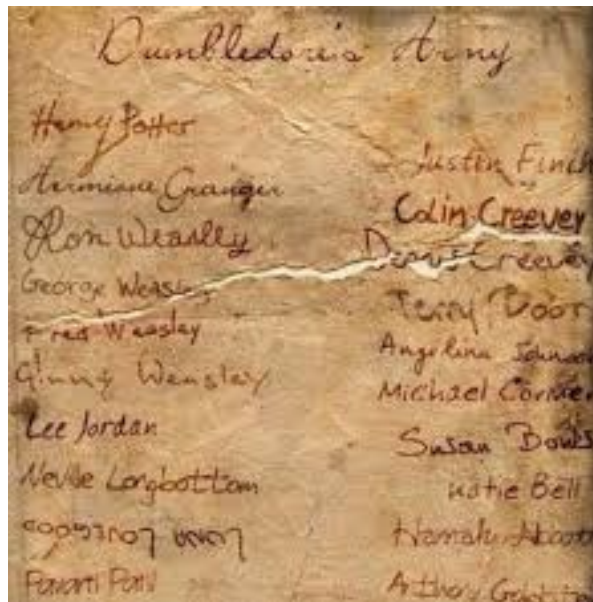 Dumbledore's Army
Harry Potter
Hermione Granger
Ron Weasley
George Weasley
Fred Weasley
Ginny Weasley
Lee Jordan
Neville Longbottom
Luna Lovegood
Parvati Patil
Justin Finch
Colin Creevey
Dennis Creevey
Terry Boot
Angelina Johnson
Michael Corner
Susan Bones
Katie Bell
Hannah Abbott
Anthony Goldstein